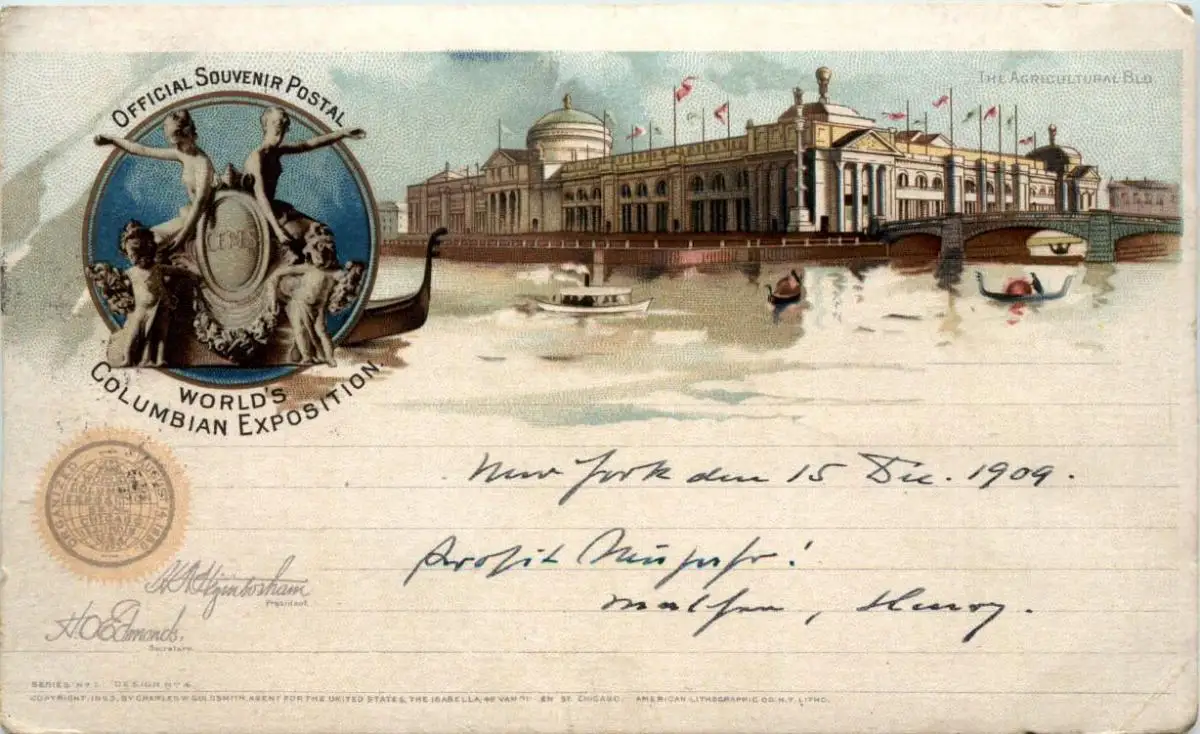 OFFICIAL SOUVENIR POSTAL
THE AGRICULTURAL BLD
WORLD'S
COLUMBIAN EXPOSITION.
New York den 15 Dec. 1909.
Prosit Neujahr!
Henry.
H. N. Higinbotham
President.
H. O. Edmonds.
Secretary.
SERIES No 1. DESIGN No 4
COPYRIGHT, 1893, BY CHARLES W. GOLDSMITH, AGENT FOR THE UNITED STATES, THE ISABELLA, 48 VAN EN ST. CHICAGO. AMERICAN LITHOGRAPHIC CO. N.Y. LITHO.